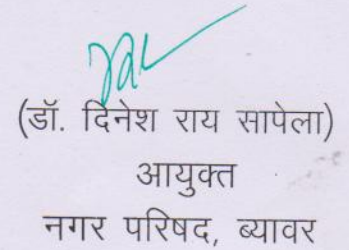 (डॉ. दिनेश राय सापेला)
आयुक्त
नगर परिषद, ब्यावर